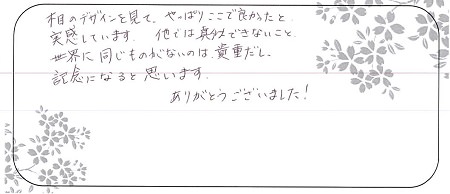 相のデザインを見て、やっぱりここで良かったと
実感しています。 他では真似できないこと、
世界に同じものがないのは、貴重だし、
記念になると思います。
ありがとうございました！